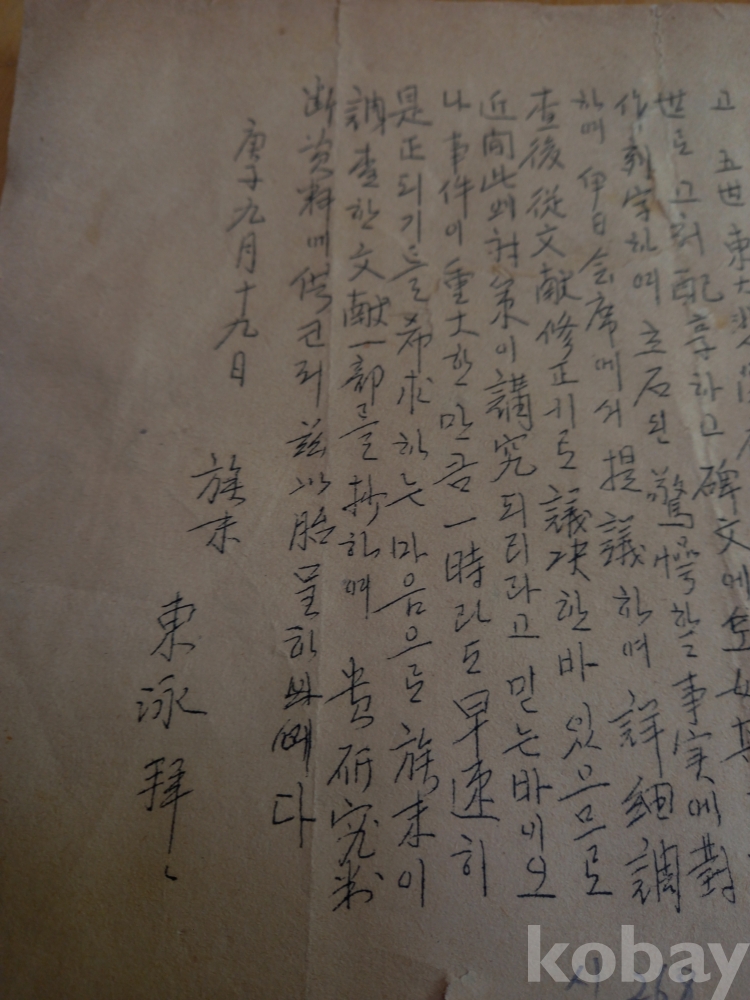 고 五世 東
世로 고쳐 配享하고 碑文에도
作 刻字하여 立石된 驚愕할 事実에 對
하여 伊日会席에서 提議하여 詳細調
查後 從文献修正키로 議决한바 있으므로
近間此 対策이 講究되리라고 믿는바이오
나 事件이 重大한만큼 一時라도 早速히
是正되기를 希求하는 마음으로 族末이
調査한 文献一部를 抄하여 貴研究判
断資料에 供코저 玆以 呈하 다
庚子九月十九日
族末
東泳拜
kobay